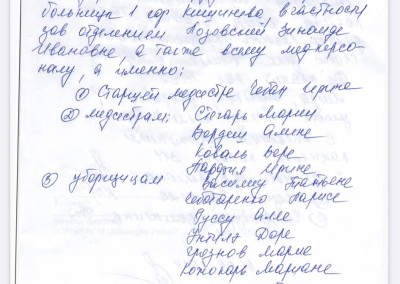 больницы 1 гор Кишинева, в частности
зав отделением Лозовский Зинаиде
Ивановне, а также всему медперсо-
налу, а именно:
① Старшей медсестре Чебан Ирине
② медсестрам: Стегарь Марии
Бордеш Алине
Коваль Вере
Нардыя Ирине
③ уборщицам Василиу Татьяне
Чеботаренко Ларисе
Руссу Алле
Унтилэ Доре
Грознов Марие
Кожокарь Мариане